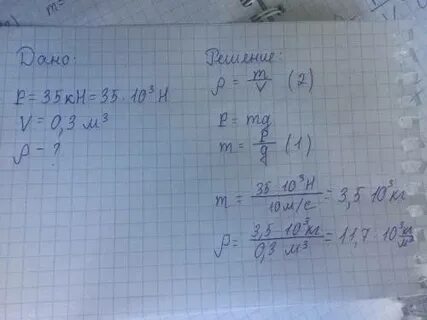 Дано:
P = 35 кН = 35 · 10³ Н
V = 0,3 м³
ρ - ?
Решение:
ρ = m/V (2)
P = mg
m = P/g (1)
m = 35 · 10³ Н / 10 м/с = 3,5 · 10³ кг
ρ = 3,5 · 10³ кг / 0,3 м³ = 11,7 · 10³ кг/м³